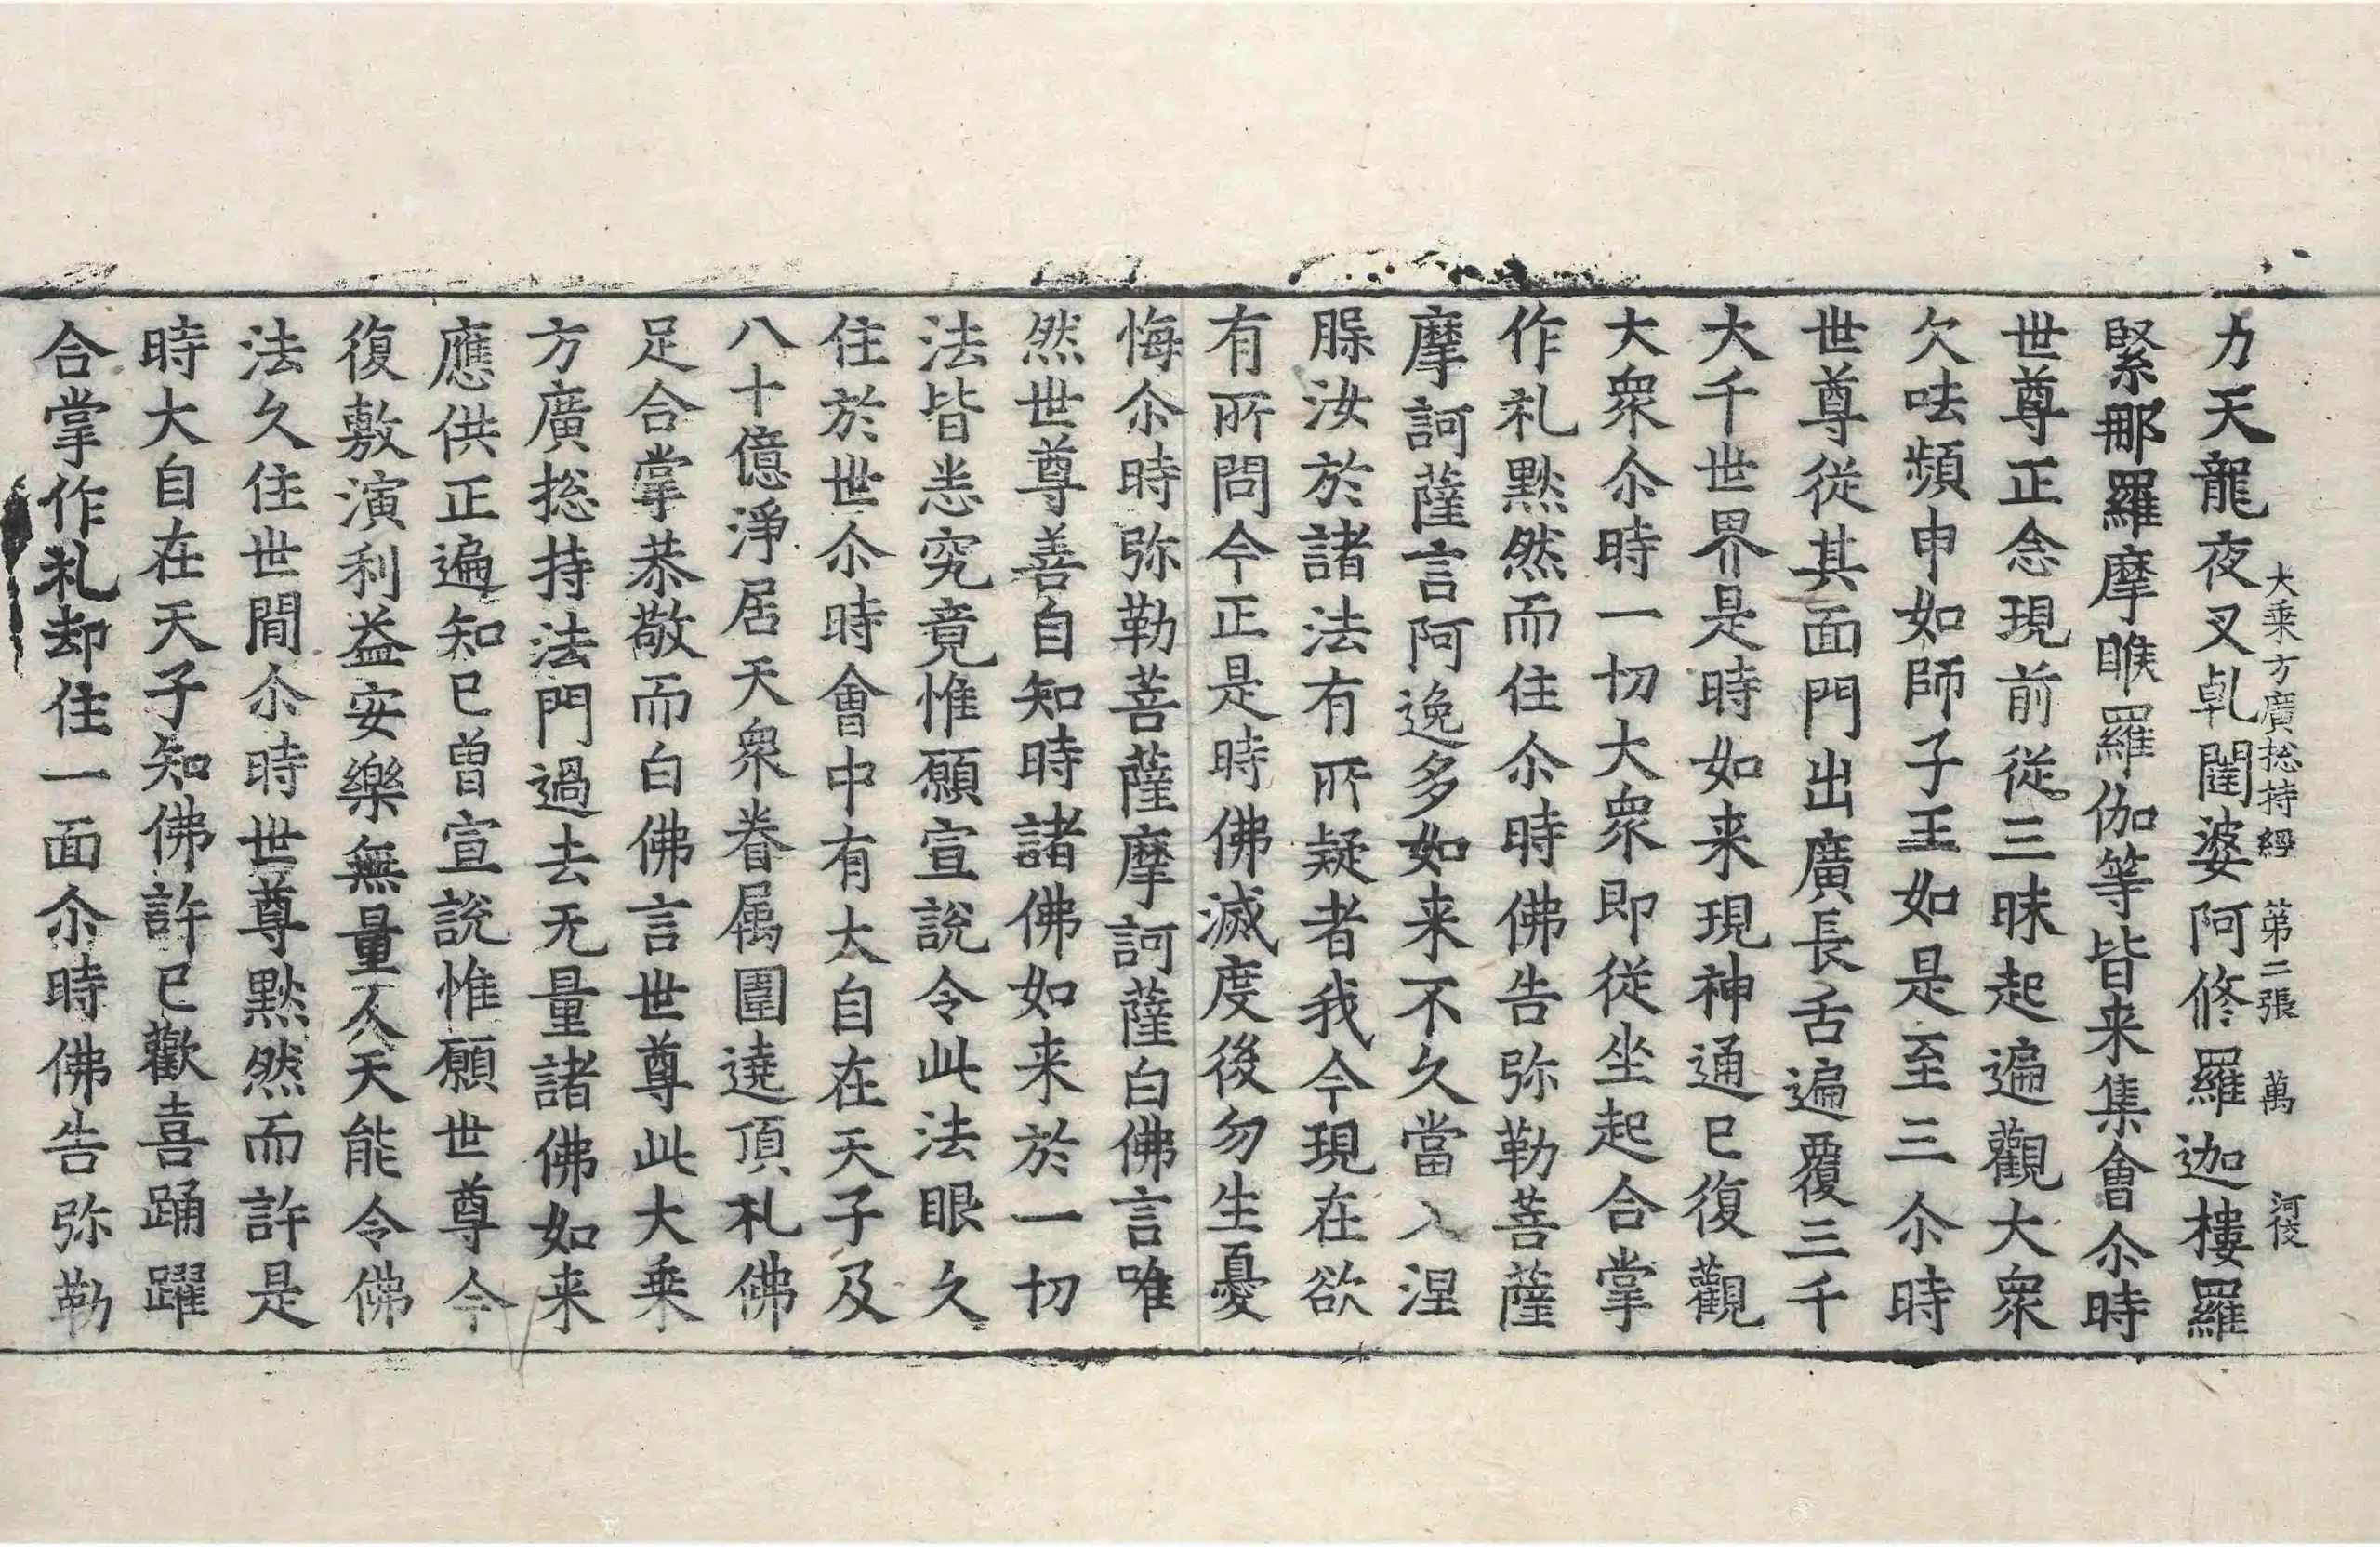 大乗方廣捴持經 第二張 萬 河俊
力天龍夜叉乹闥婆阿修羅迦樓羅
緊那羅摩睺羅伽等皆来集會尒時
世尊正念現前從三昧起遍觀大衆
欠呿頻申如師子王如是至三尒時
世尊從其面門出廣長舌遍覆三千
大千世界是時如来現神通已復觀
大衆尒時一切大衆即從坐起合掌
作礼黙然而住尒時佛告弥勒菩薩
摩訶薩言阿逸多如来不久當入涅
脲汝於諸法有所疑者我今現在欲
有所問今正是時佛滅度後勿生憂
悔尒時弥勒菩薩摩訶薩白佛言唯
然世尊善自知時諸佛如来於一切
法皆悉究竟惟願宣說令此法眼久
住於世尒時會中有大自在天子及
八十億淨居天衆眷属圍遶頂礼佛
足合掌恭敬而白佛言世尊此大乗
方廣捴持法門過去无量諸佛如来
應供正遍知已曽宣說惟願世尊今
復敷演利益安樂無量人天能令佛
法久住世閒尒時世尊黙然而許是
時大自在天子知佛許已歡喜踊躍
合掌作礼却住一面尒時佛告弥勒